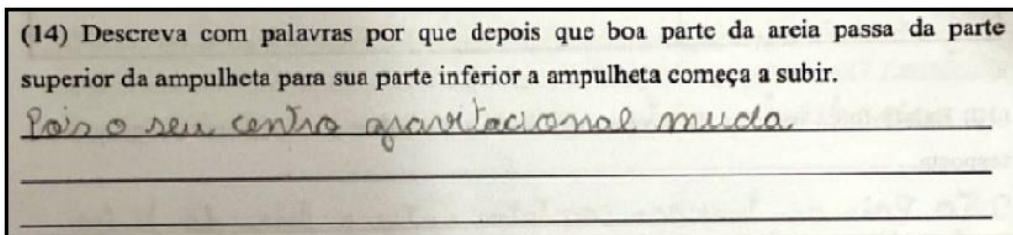 (14) Descreva com palavras por que depois que boa parte da areia passa da parte
superior da ampulheta para sua parte inferior a ampulheta começa a subir.
Pois o seu centro gravitacional muda